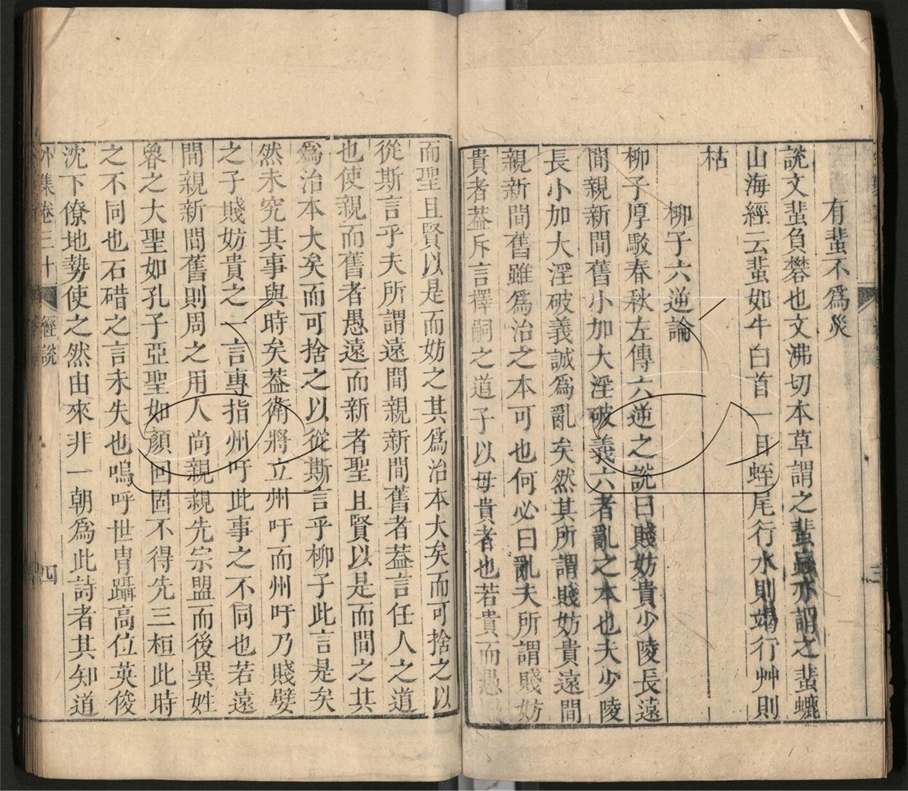 有蜚不爲災
說文蜚負礬也文沸切本草謂之蜚蠊亦謂之蜚蠦
山海經云蜚如牛白首一目蛇尾行水則竭行艸則
枯
柳子六逆論
柳子厚駁春秋左傳六逆之說曰賤妨貴少陵長遠
間親新間舊小加大淫破義六者亂之本也夫少陵
長小加大淫破義誠爲亂矣然其所謂賤妨貴遠間
親新間舊雖爲治之本可也何必曰亂夫所謂賤妨
貴者葢斥言擇嗣之道子以母貴者也若貴而愚
而聖且賢以是而妨之其爲治本大矣而可捨之以
從斯言乎夫所謂遠間親新間舊者葢言任人之道
也使親而舊者愚遠而新者聖且賢以是而間之其
爲治本大矣而可捨之以從斯言乎柳子此言是矣
然未究其事與時矣葢衛將立州吁而州吁乃賤嬖
之子賤妨貴之一言專指州吁此事之不同也若遠
間親新間舊則周之用人尚親親先宗盟而後異姓
魯之大聖如孔子亞聖如顏回固不得先三桓此時
之不同也石碏之言未失也嗚呼世胄躡高位英俊
沈下僚地勢使之然由來非一朝爲此詩者其知道
外集卷三十 經說 四